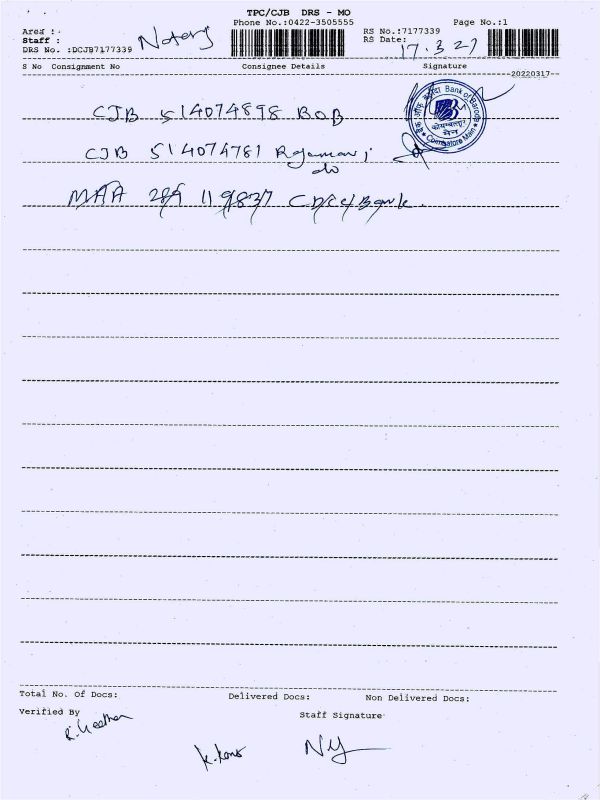 TPC/CJB DRS - MO
Phone No.:0422-3505555
Page No.:1
Area :
Staff :
DRS No. :DCJB7177339
RS No.:7177339
RS Date:
17.3.22
S No Consignment No
Consignee Details
Signature
20220317
CJB 514074898 BOB
Bank of Baroda
Coimbatore Main
CJB 514074781
do
MAA 289 119837 Bank.
Total No. Of Docs:
Delivered Docs:
Non Delivered Docs:
Verified By
Staff Signature